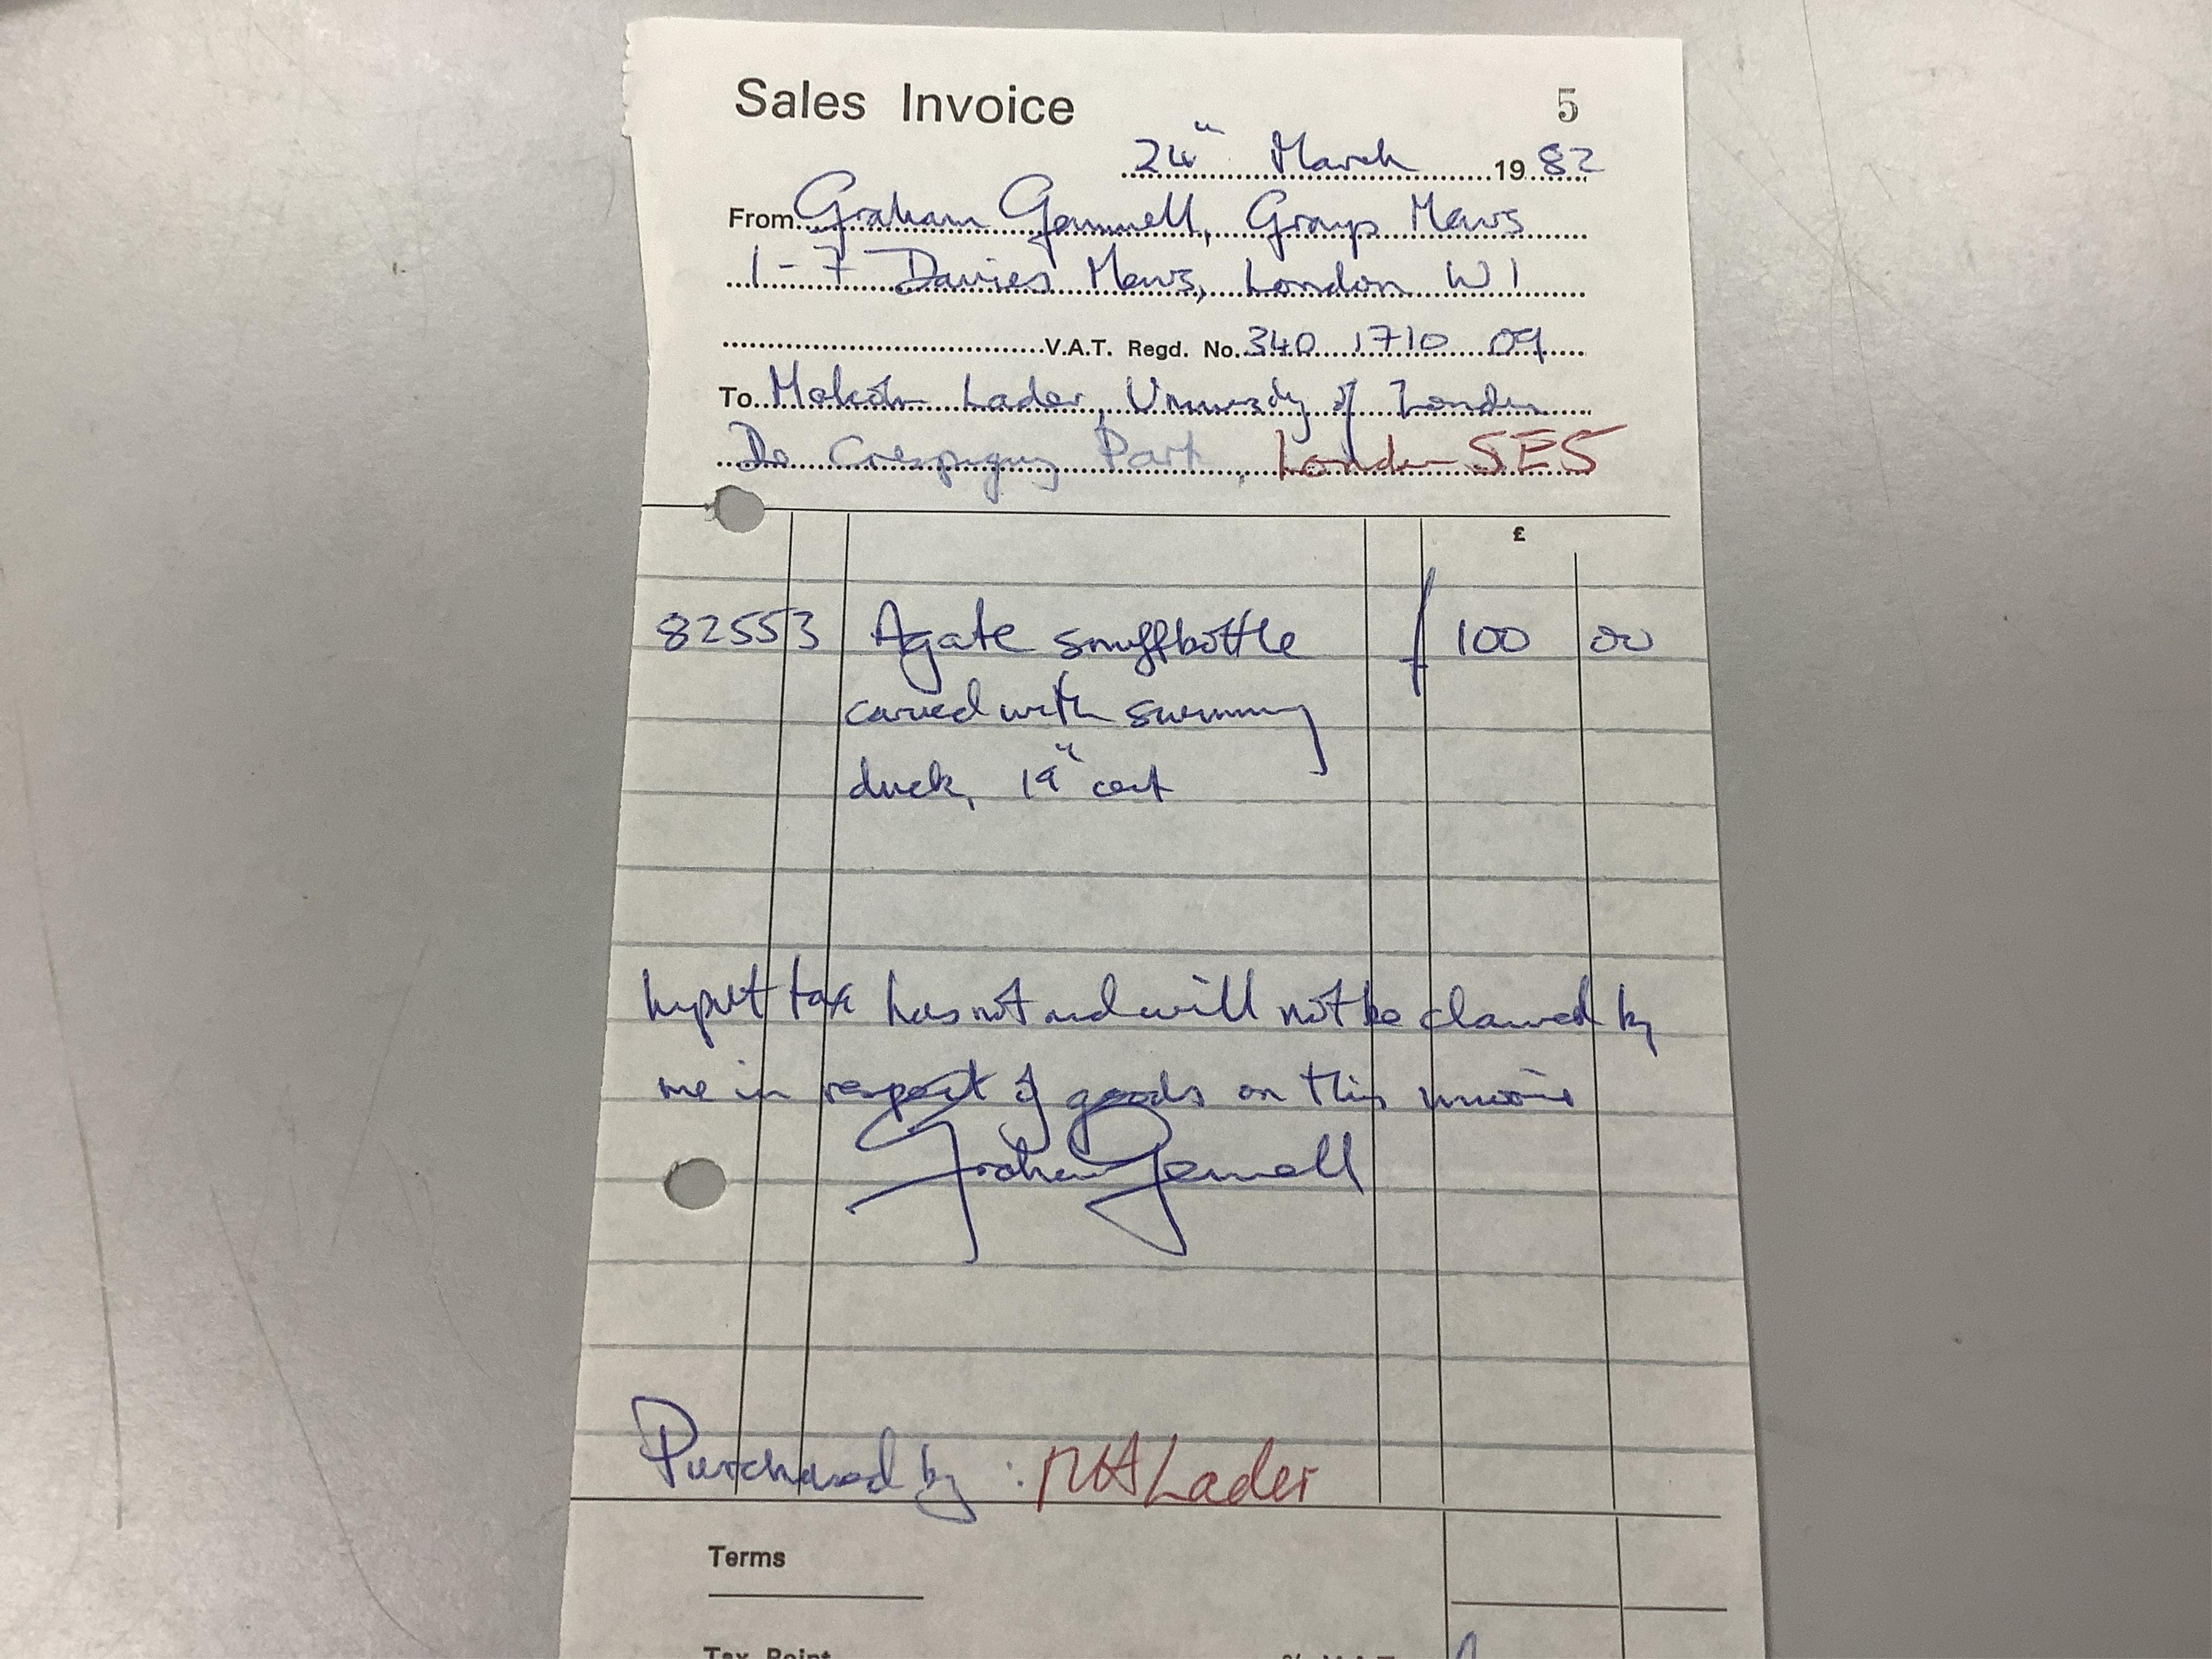 Sales Invoice 5
24" March 1982
From Graham Gemmell, Grays Mews
1-7 Davies Mews, London W1
V.A.T. Regd. No. 340 1710 09
To Malcolm Lader, University of London
De Crespigny Park, London SE5
£
82553 Agate snuffbottle £ 100 00
carved with swimming
duck, 19" cent
Input tax has not and will not be claimed by
me in respect of goods on this invoice
Graham Gemmell
Purchased by : MHLader
Terms
Tax Point % V.A.T.